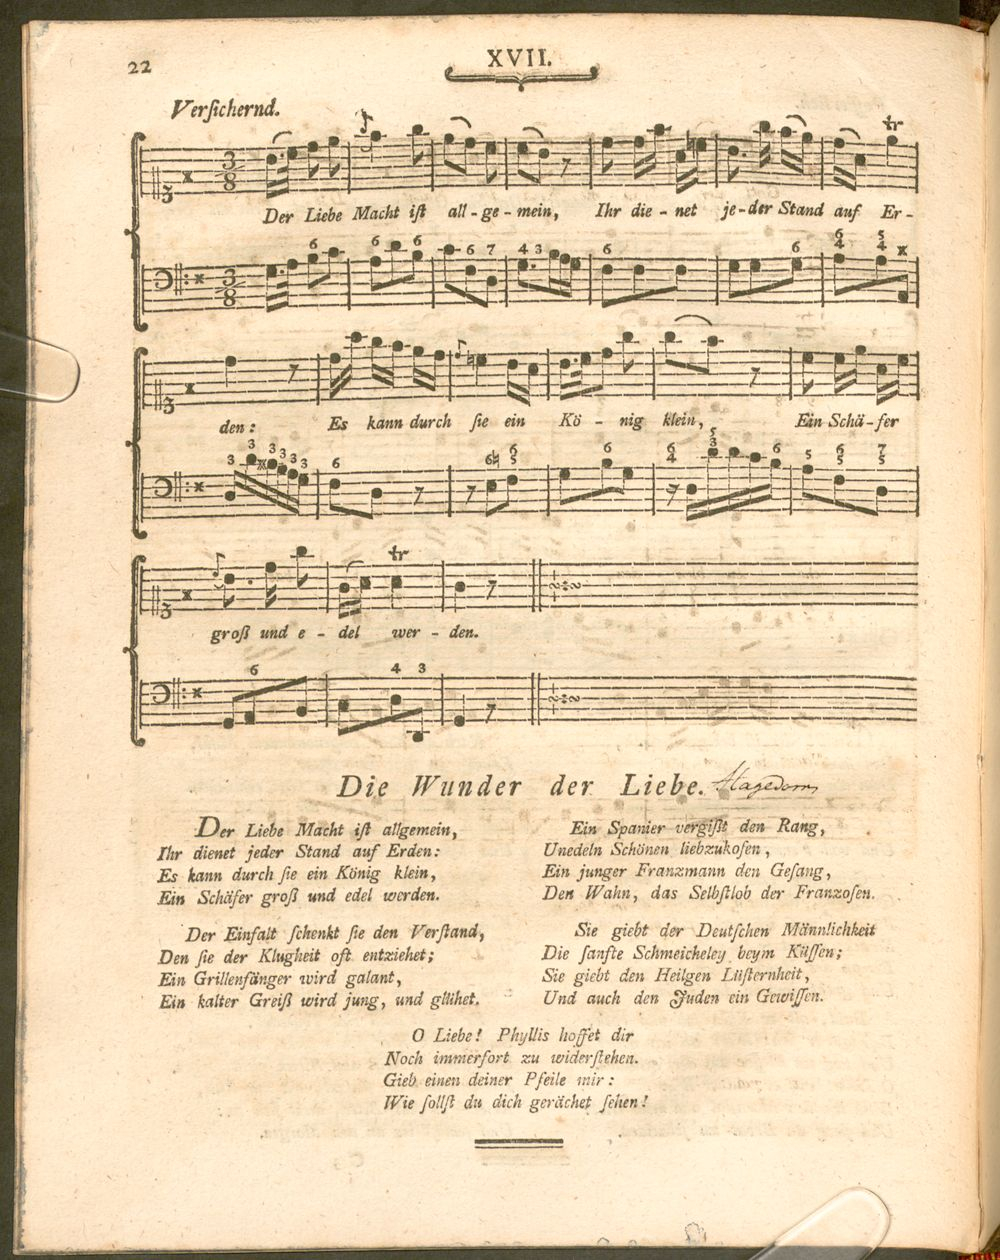 22
XVII.
Verſichernd.
tr
Der Liebe Macht iſt all-ge-mein, Ihr die-net je-der Stand auf Er-
den: Es kann durch ſie ein Kö-nig klein, Ein Schä-fer
tr
groß und e-del wer-den.
Die Wunder der Liebe. Hagedorn
Der Liebe Macht iſt allgemein,
Ihr dienet jeder Stand auf Erden:
Es kann durch ſie ein König klein,
Ein Schäfer groß und edel werden.
Der Einfalt ſchenkt ſie den Verſtand,
Den ſie der Klugheit oft entziehet;
Ein Grillenfänger wird galant,
Ein kalter Greiß wird jung, und glühet.
Ein Spanier vergißt den Rang,
Unedeln Schönen liebzukoſen,
Ein junger Franzmann den Geſang,
Den Wahn, das Selbſtlob der Franzoſen.
Sie giebt der Deutſchen Männlichkeit
Die ſanfte Schmeicheley beym Küſſen;
Sie giebt den Heilgen Lüſternheit,
Und auch den Juden ein Gewiſſen.
O Liebe! Phyllis hoffet dir
Noch immerfort zu widerſtehen.
Gieb einen deiner Pfeile mir:
Wie ſollſt du dich gerächet ſehen!